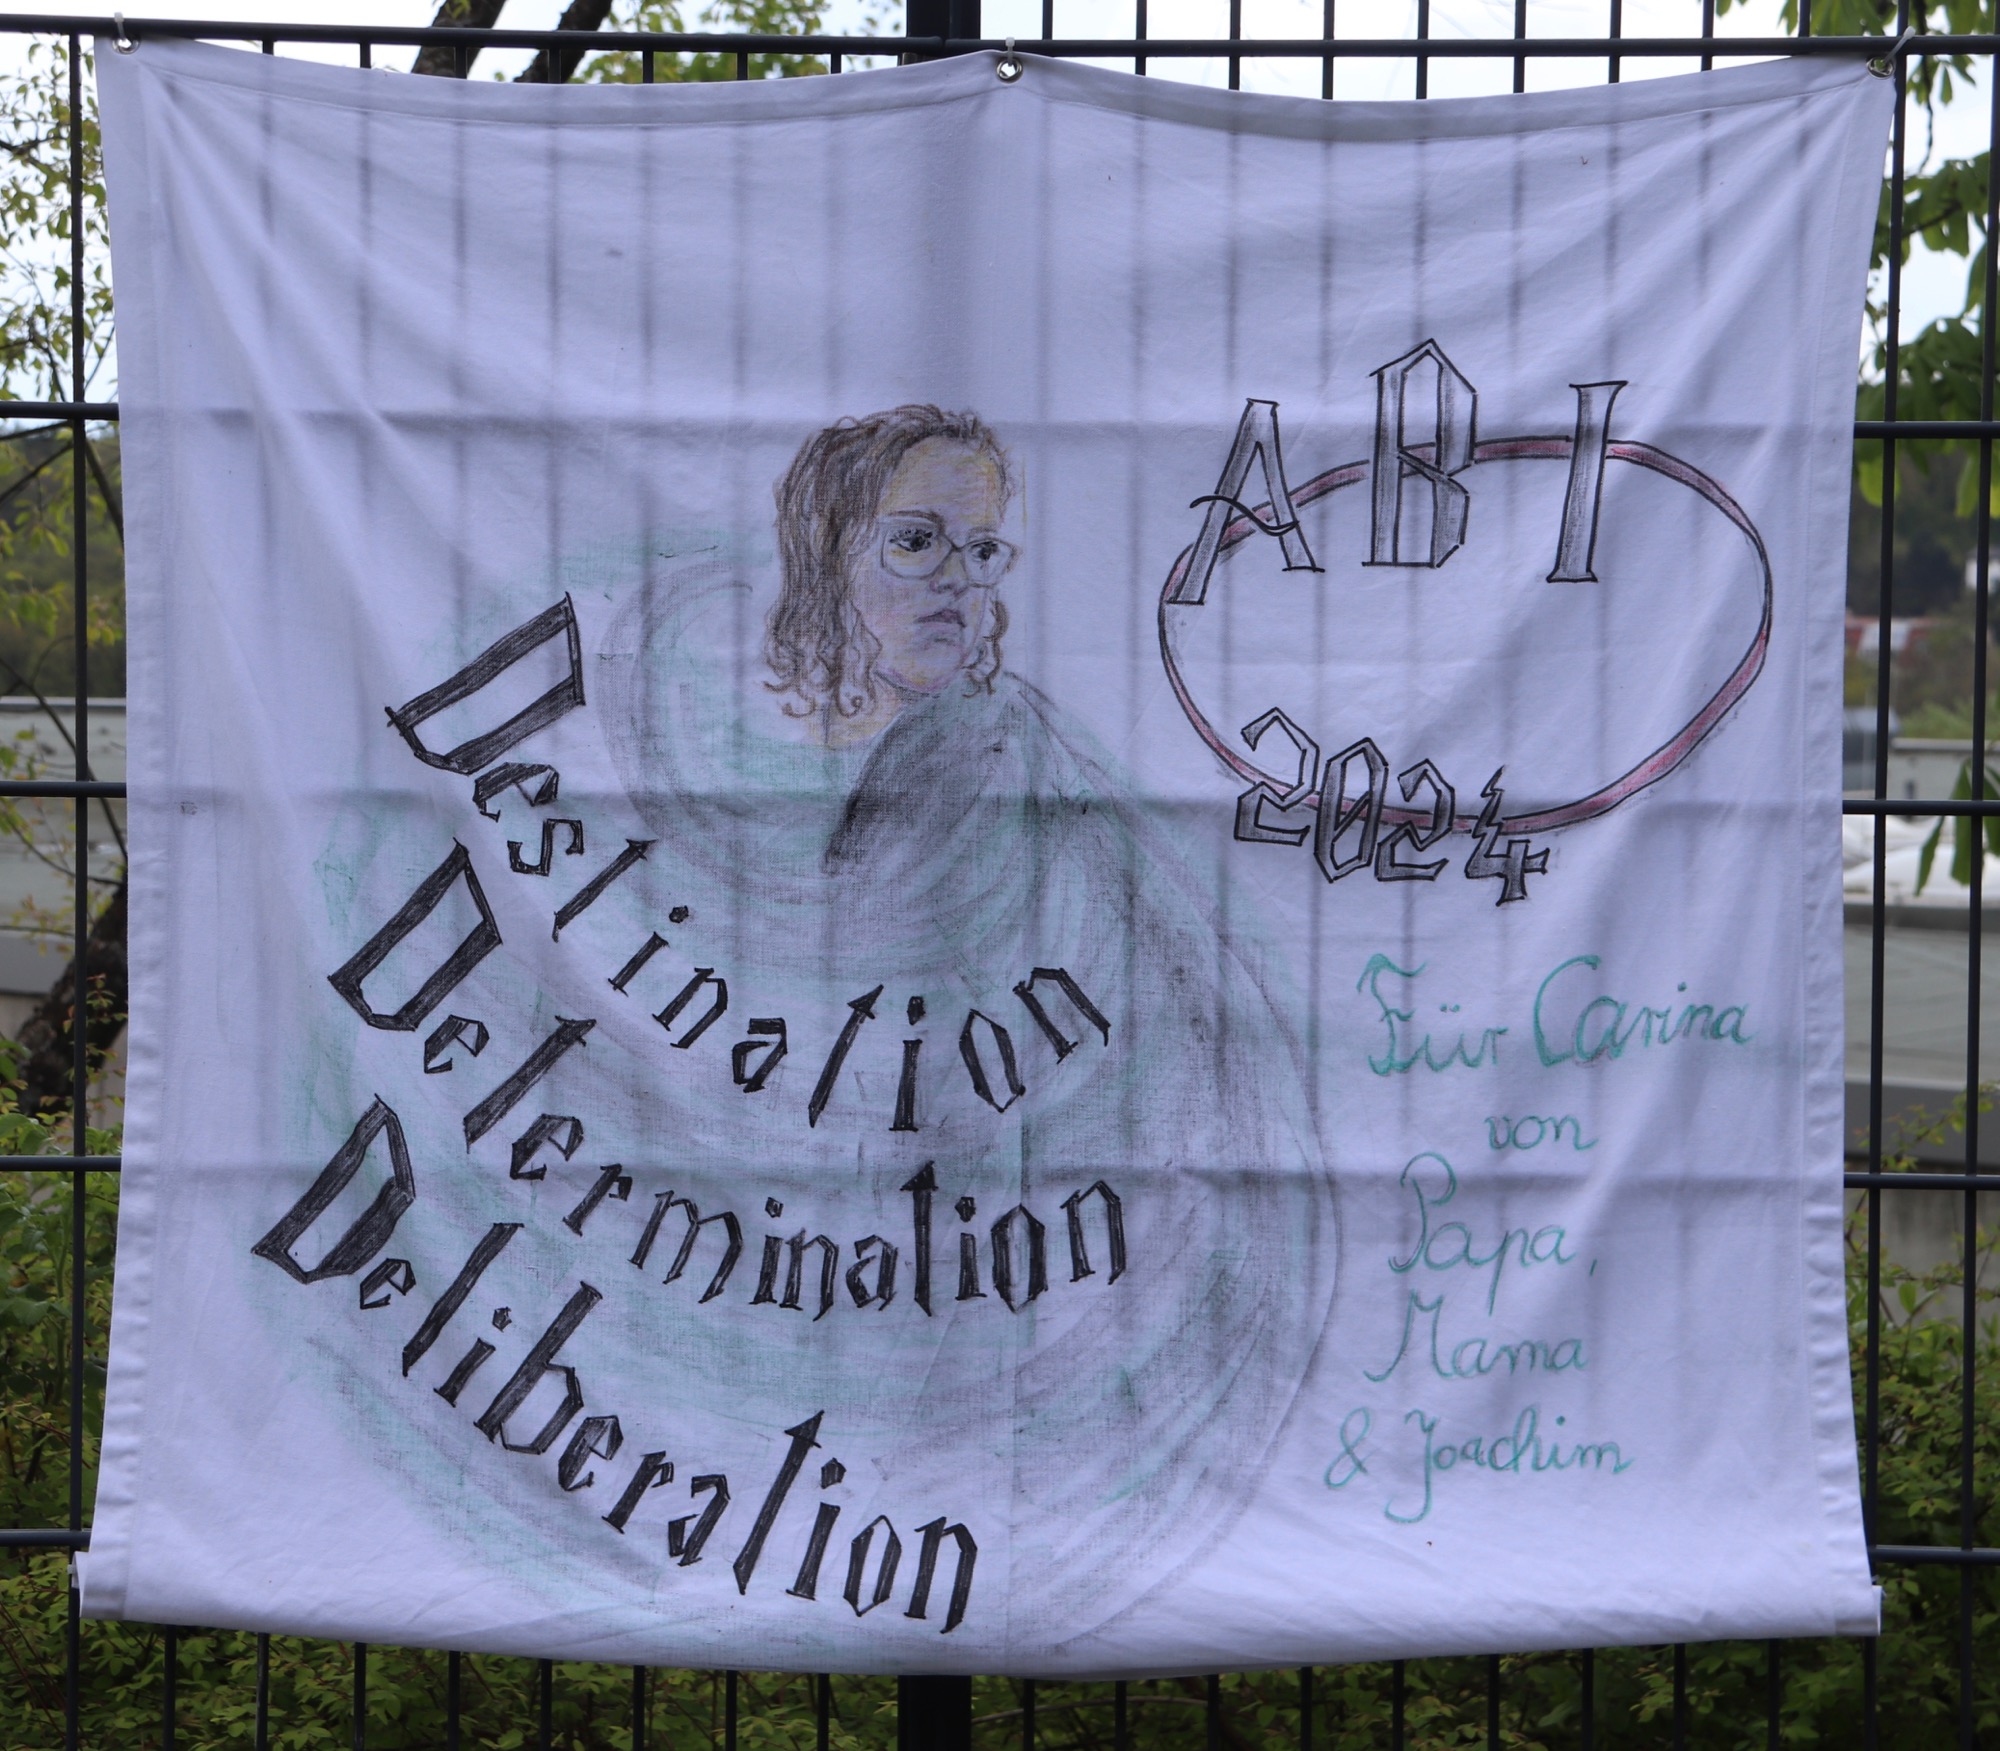 ABI
2024
Destination
Determination
Deliberation
Für Carina
von
Papa,
Mama
& Joachim